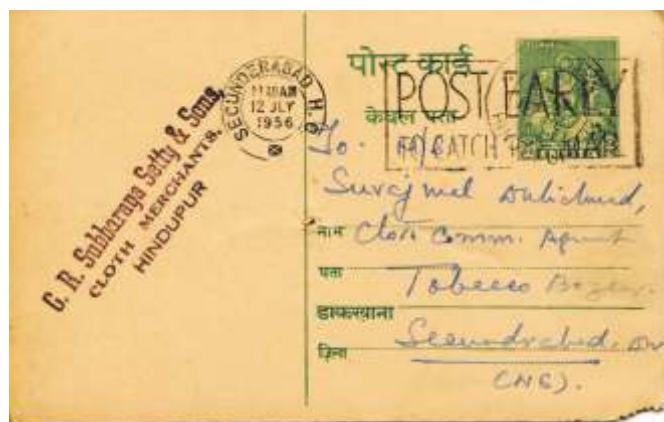 G. R. Subbaraya Setty & Sons,
CLOTH MERCHANTS.
HINDUPUR
SECUNDERABAD. H.O
11 30AM
12 JLY
1956
पोस्ट कार्ड
केवल पता
POST EARLY
TO CATCH THE MAIL
To.
Surajmel Dulichand,
नाम Cloth Comm. Agent
पता Tobacco Bazar.
डाकखाना
ज़िला Secundrabad. Dn
(NG).